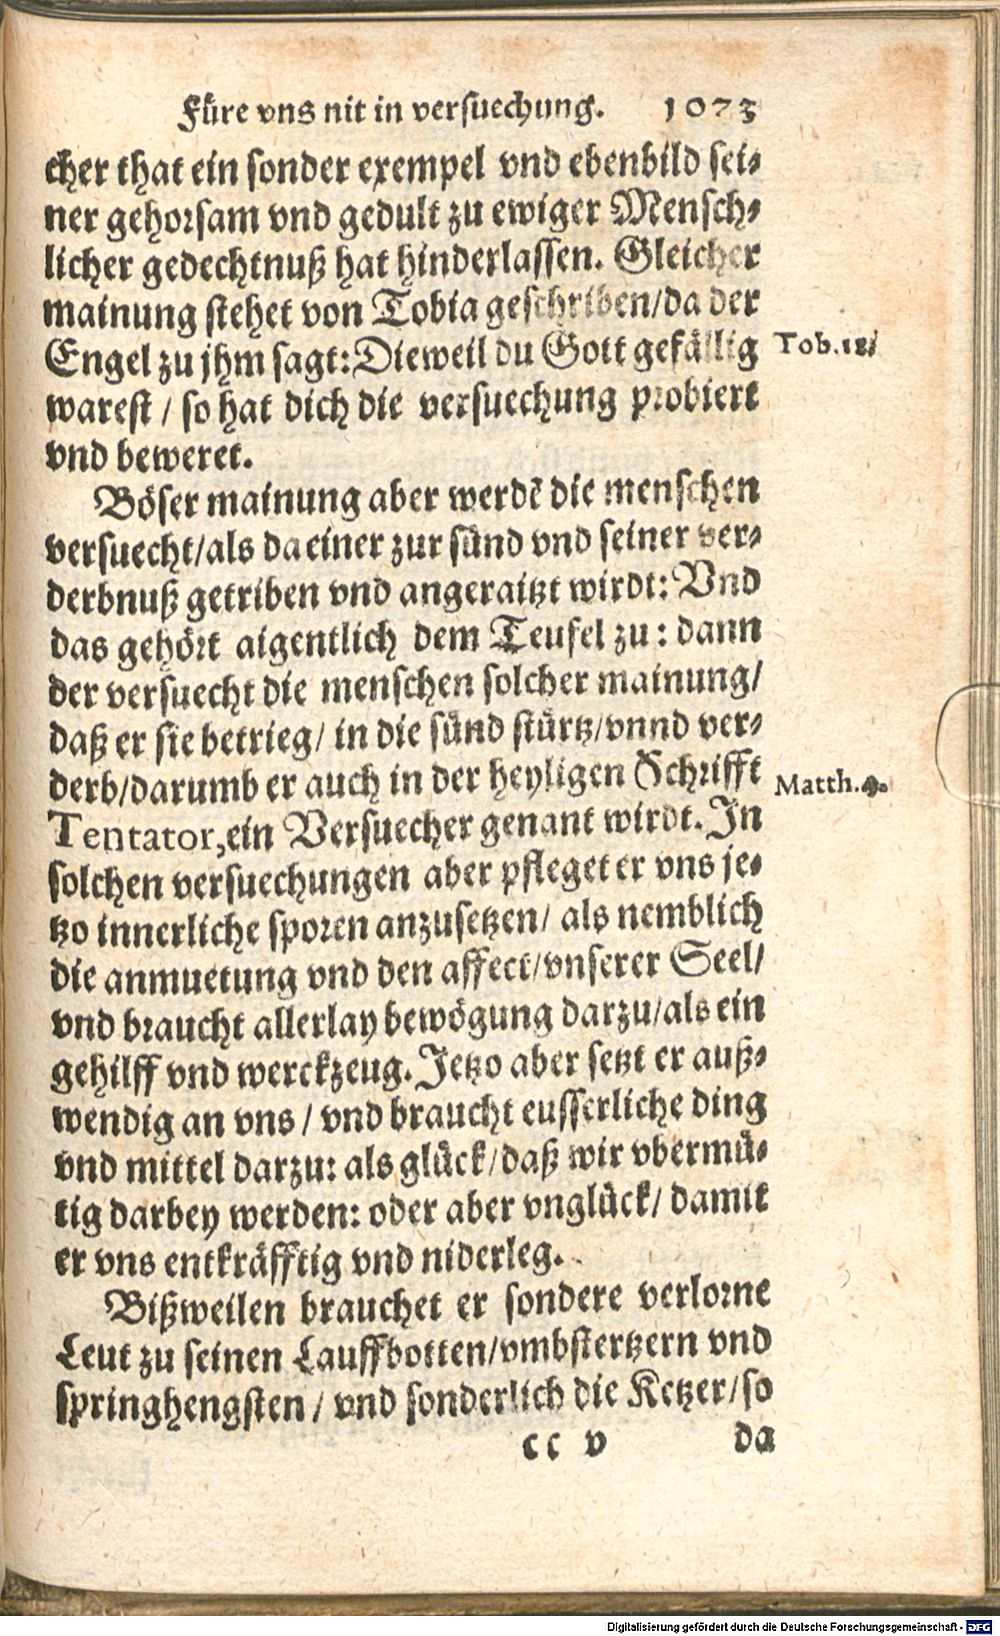 Füre vns nit in versuechung. 1073
cher that ein sonder exempel vnd ebenbild sei-
ner gehorsam vnd gedult zu ewiger Mensch-
licher gedechtnuß hat hinderlassen. Gleicher
mainung stehet von Tobia geschriben/da der
Engel zu jhm sagt: Dieweil du Gott gefällig
Tob. 12.
warest / so hat dich die versuechung probiert
vnd beweret.
Böser mainung aber werdē die menschen
versuecht/als da einer zur sünd vnd seiner ver-
derbnuß getriben vnd angeraitzt wirdt: Vnd
das gehört aigentlich dem Teufel zu: dann
der versuecht die menschen solcher mainung/
daß er sie betrieg/ in die sünd stürtz/vnnd ver-
derb/darumb er auch in der heyligen Schrifft
Matth. 4.
Tentator, ein Versuecher genant wirdt. In
solchen versuechungen aber pfleget er vns je-
tzo innerliche sporen anzusetzen/ als nemblich
die anmuetung vnd den affect/vnserer Seel/
vnd braucht allerlay bewögung darzu/als ein
gehilff vnd werckzeug. Jetzo aber setzt er auß-
wendig an vns / vnd braucht eusserliche ding
vnd mittel darzu: als glück/daß wir vbermü-
tig darbey werden: oder aber vnglück/ damit
er vns entkräfftig vnd niderleg.
Bißweilen brauchet er sondere verlorne
Leut zu seinen Lauffbotten/vmbstertzern vnd
springhengsten / vnd sonderlich die Ketzer/so
cc v da
Digitalisierung gefördert durch die Deutsche Forschungsgemeinschaft - DFG